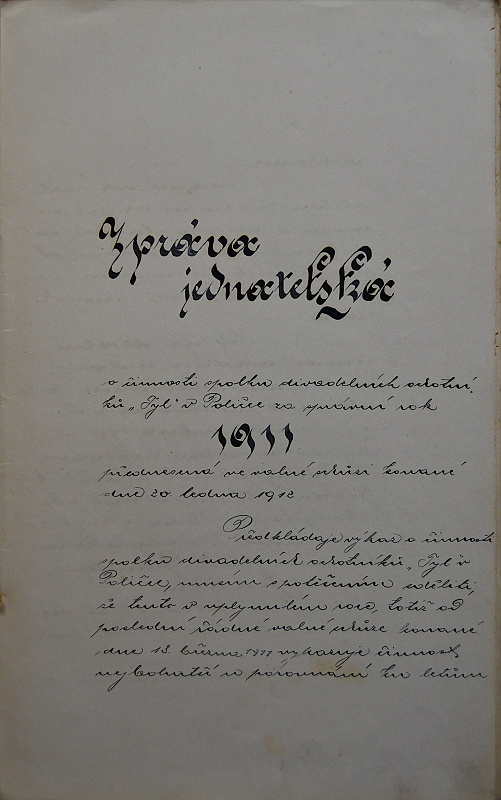 Zpráva
jednatelská
o činnosti spolku divadelních ochotní-
ků „Tyl" v Poličce za správní rok
1911
přednesená ve valné schůzi konané
dne 20. ledna 1912
Předkládaje výkaz o činnosti
spolku divadelních ochotníků „Tyl" v
Poličce, musím s potěšením sděliti,
že tento v uplynulém roce, totiž od
poslední řádné valné schůze konané
dne 18. března 1911 vykazuje činnost
nejbohatší u porovnání ku letům